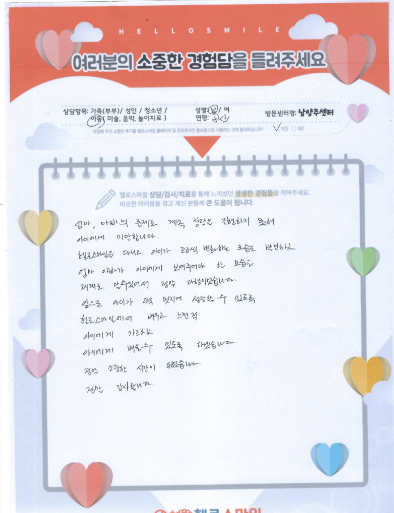 HELLOSMILE
여러분의 소중한 경험담을 들려주세요
상담항목: 가족(부부)/ 성인 / 청소년 /
아동( 미술, 음악, 놀이치료 )
성별: 남/ 여
연령:
방문센터명: 남양주센터
YES NO
헬로스마일 상담/검사/치료를 통해 느끼셨던 생생한 경험들을 적어주세요.
비슷한 어려움을 겪고 계신 분들께 큰 도움이 됩니다.
엄마, 아빠의 문제로 계속 상담을 진행하지 못해
아이에게 미안합니다.
헬로스마일을 다니고 아이가 조금씩 변화하는 모습을 발견하고
엄마 아빠가 아이에게 보여주어야 하는 모습을
제대로 알 수 있어서 정말 다행이었습니다.
앞으로 아이가 더욱 멋지게 성장할 수 있도록
헬로스마일에서 배우고 느낀점
아이에게 가르치고
아이에게 배울 수 있도록 하겠습니다.
정말 소중한 시간이 되었습니다.
정말 감사합니다.
헬로스마일